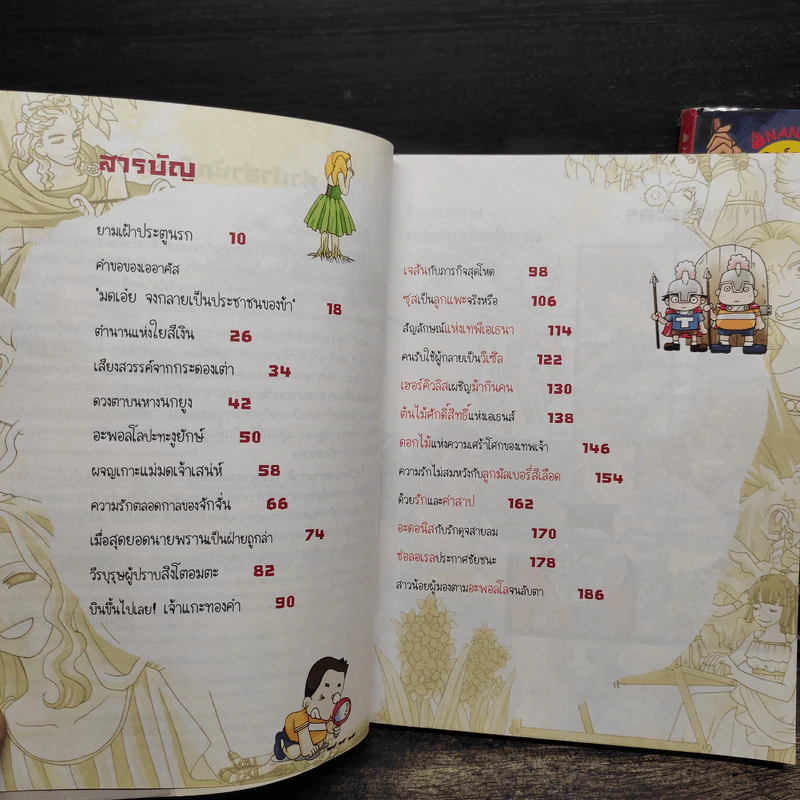 สารบัญ
ยามเฝ้าประตูนรก 10
คำขอของเออาคัส
"มดเอ๋ย จงกลายเป็นประชาชนของข้า" 18
ตำนานแห่งใยสีเงิน 26
เสียงสวรรค์จากกระดองเต่า 34
ดวงตาบนหางนกยูง 42
อะพอลโลปะทะงูยักษ์ 50
ผจญเกาะแม่มดเจ้าเสน่ห์ 58
ความรักตลอดกาลของจักจั่น 66
เมื่อสุดยอดนายพรานเป็นฝ่ายถูกล่า 74
วีรบุรุษผู้ปราบสิงโตอมตะ 82
บินขึ้นไปเลย! เจ้าแกะทองคำ 90
NAN
เจสันกับภารกิจสุดโหด 98
ซุสเป็นลูกแพะจริงหรือ 106
สัญลักษณ์แห่งเทพีเอเธนา 114
คนรับใช้ผู้กลายเป็นวีเซิล 122
เฮอร์คิวลิสเผชิญม้ากินคน 130
ต้นไม้ศักดิ์สิทธิ์แห่งเอเธนส์ 138
ดอกไม้แห่งความเศร้าโศกของเทพเจ้า 146
ความรักไม่สมหวังกับลูกมัลเบอรี่สีเลือด 154
ด้วยรักและคำสาป 162
อะดอนิสกับรักดุจสายลม 170
ช่อลอเรลประกาศชัยชนะ 178
สาวน้อยผู้มองตามอะพอลโลจนลับตา 186
T